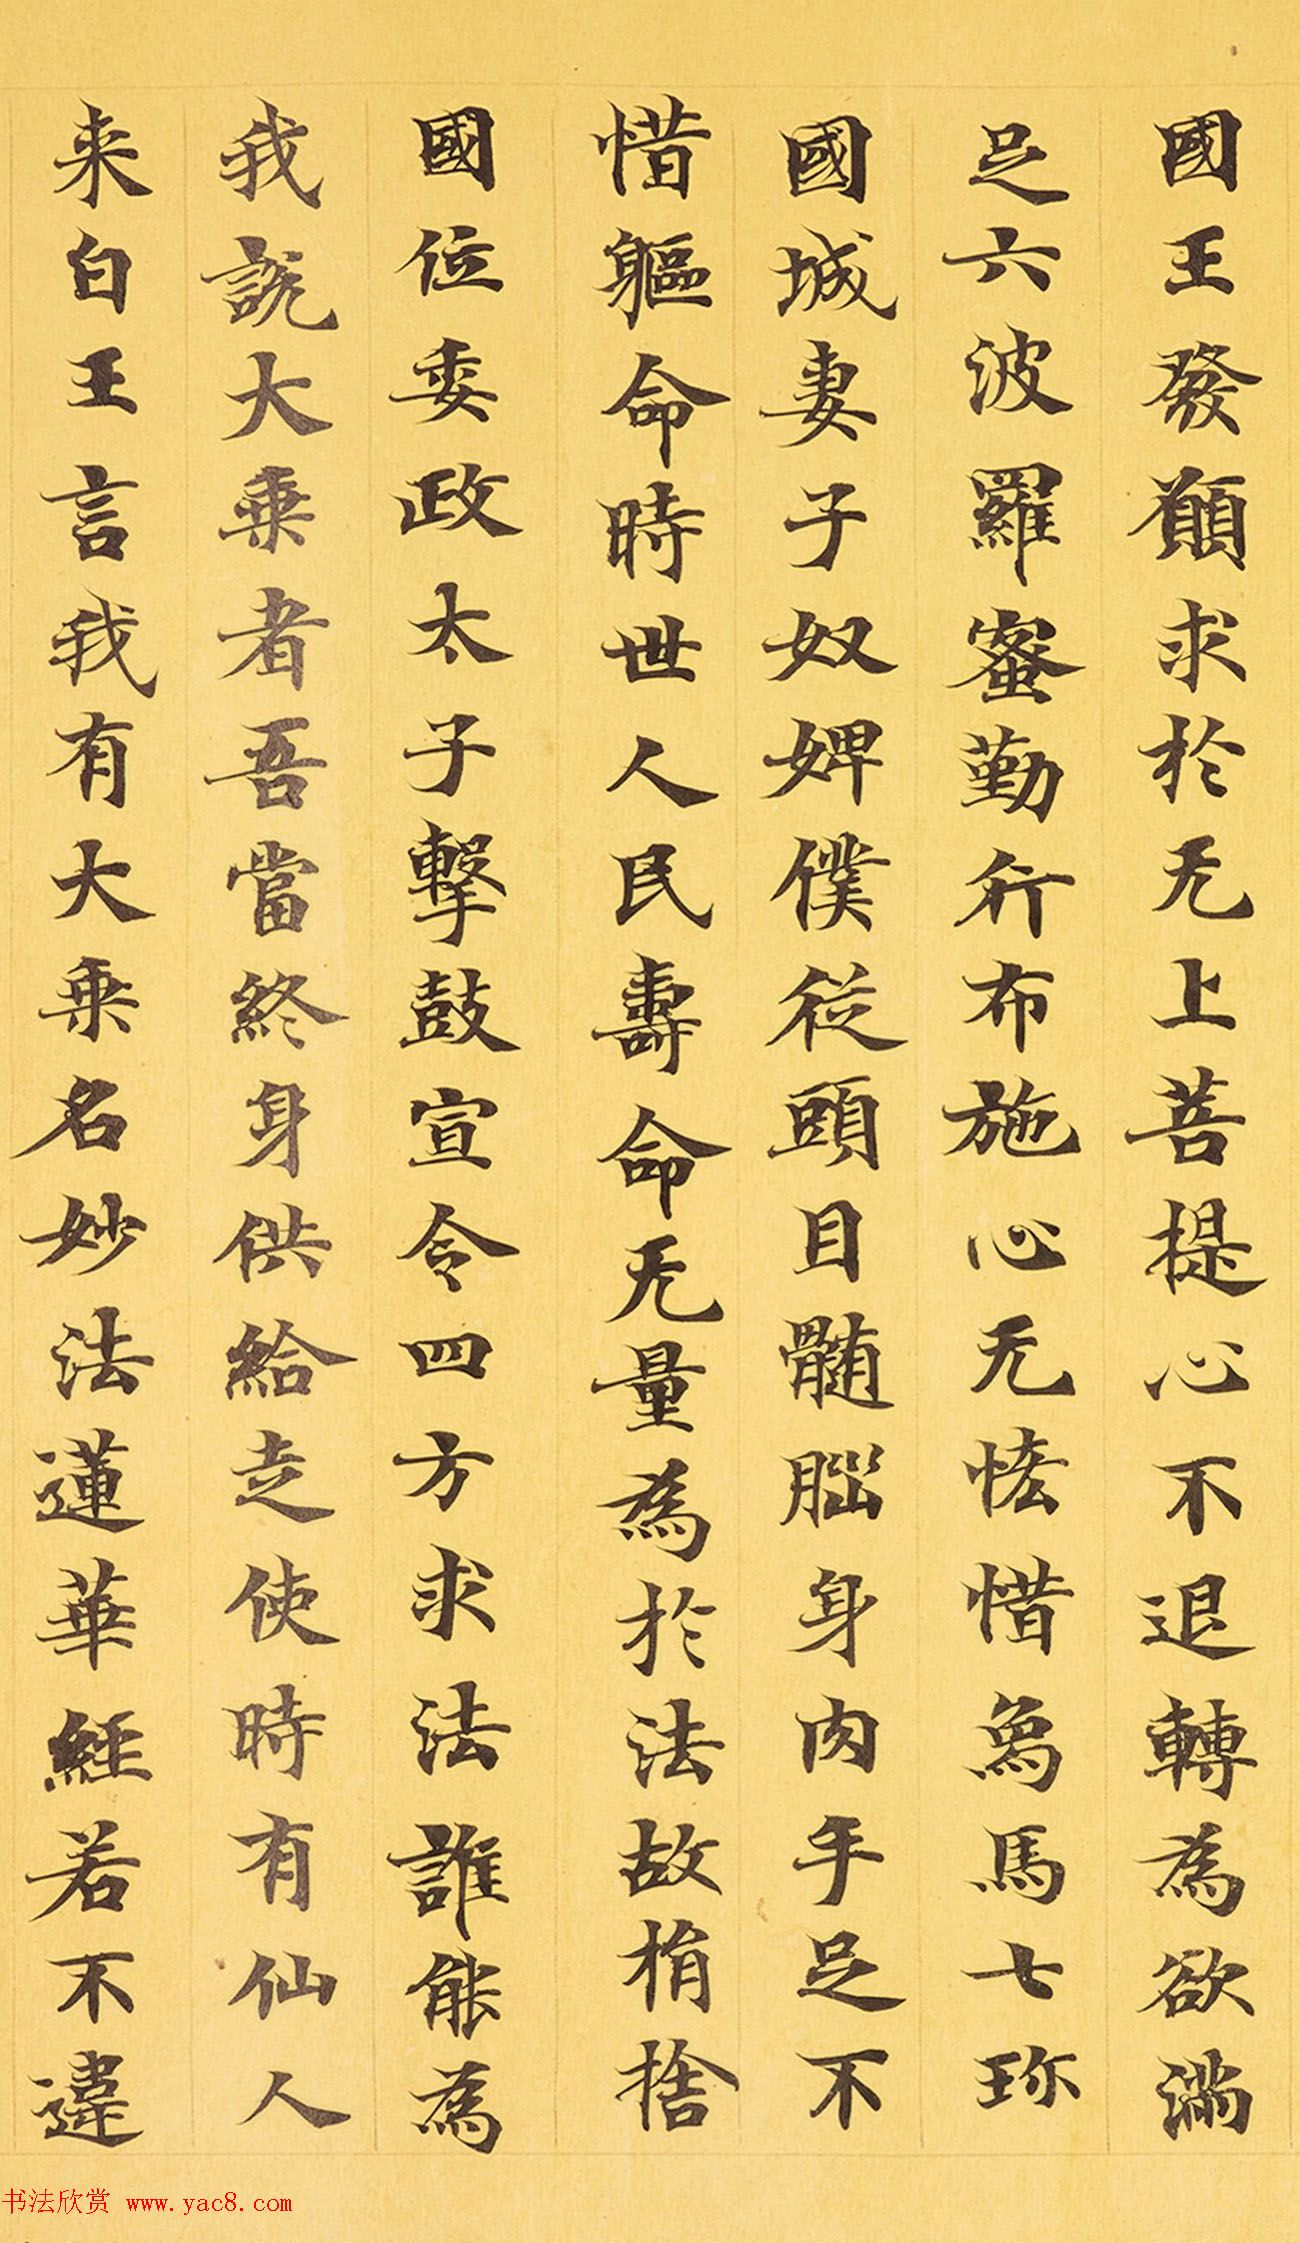 國王發願求於无上菩提心不退轉為欲滿
足六波羅蜜勤行布施心无悋惜象馬七珎
國城妻子奴婢僕從頭目髓腦身肉手足不
惜軀命時世人民壽命无量為於法故捐捨
國位委政太子擊鼓宣令四方求法誰能為
我說大乘者吾當終身供給走使時有仙人
来白王言我有大乘名妙法蓮華經若不違
书法欣赏 www.yac8.com